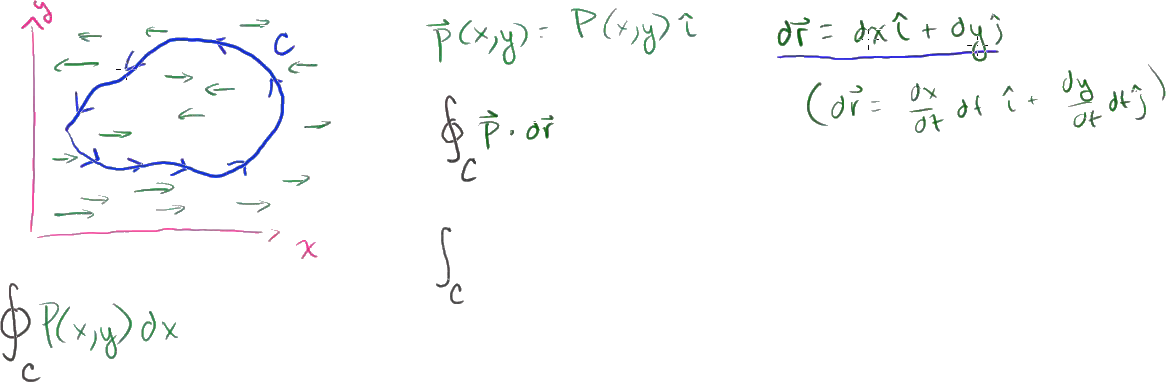 y
C
x
∮_C P(x,y) dx
P⃗(x,y) = P(x,y) î
∮_C P⃗ · dr⃗
∫_C
dr⃗ = dx î + dy ĵ
(dr⃗ = dx/dt dt î + dy/dt dt ĵ)